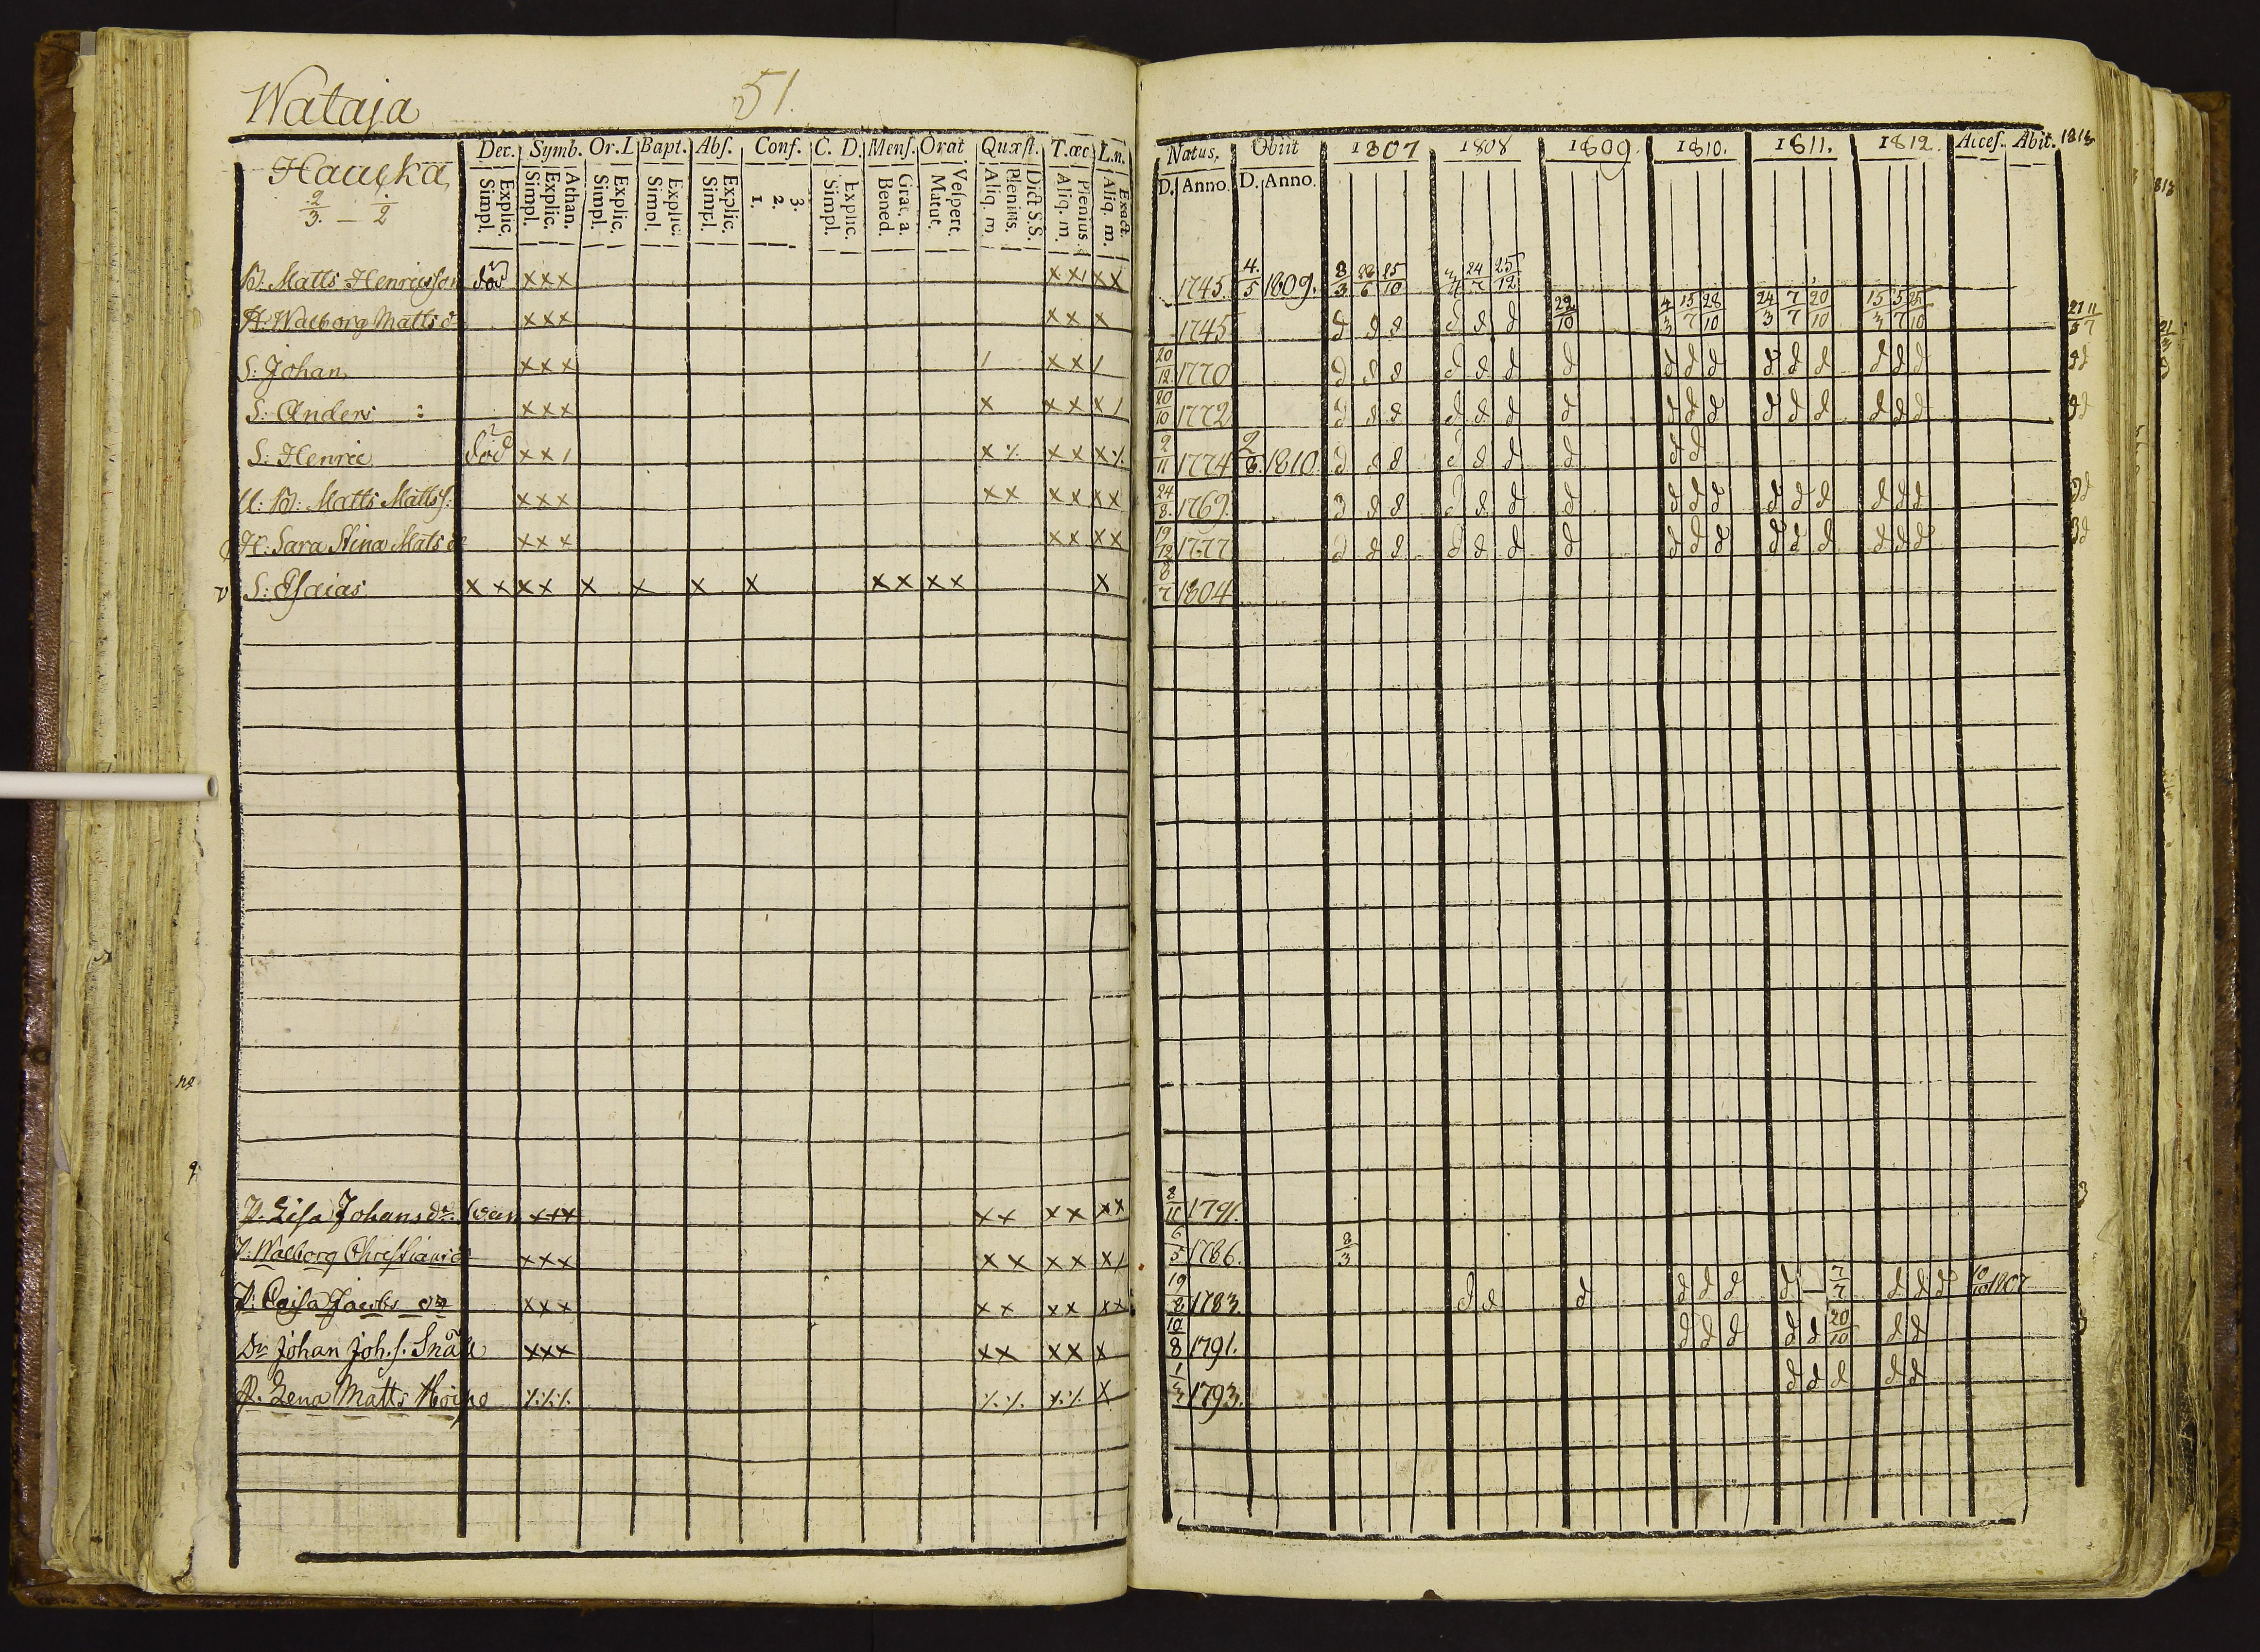 Wataja
51.
Dec. Symb. Or. L Bapt. Abſ. Conf. C. D. Menſ. Orat Quæſt. T. œc L. n.
Haucka
2/3 - 1/2
Explic. Simpl. Athan. Explic. Simpl. Explic. Simpl. Explic. Simpl. Explic. Simpl. 3. 2. 1. Explic. Simpl. Grat. a. Bened. Veſpert. Matut. Dict S.S. Plenius. Aliq. m. Plenius. Aliq. m. Exact. Aliq. m.
B. Matts Henricsson död xxx xx/ xx
H. Walborg Matts d xxx xxx x
S: Johan xxx / xx /
S: Anders xxx x xx x/
S: Henric död xx/ x ⁒ xx x⁒
B: Matts Matts s. xxx xx xx xx
H: Sara Stina Mats d xxx xx xx
S: Esaias xx xx x x x x xx xx x
P. Lisa Johans dr xxx xx xx xx
P: Walborg Christians d xxx xx xx x/
P: Caisa Jacobs dr xxx xx xx xx
Dr Johan Joh. s. Snåll xxx xx xx x
P. Lena Matts ⁒⁒⁒ ⁒⁒ ⁒⁒ x
Natus. Obiit 1807 1808 1809. 1810. 1811. 1812. Acceſ. Abit. 1813
D. Anno. D. Anno.
1745. 4/5 1809. 8/3 28/6 25/10 3/4 24/7 25/12
1745 d d d d d d 22/10 4/3 15/7 28/10 24/3 7/7 20/10 15/3 5/7 25/10 21/3 11/7
20/12 1770 d d d d d d d d d d d d d d d d d d
20/10 1772 d d d d d d d d d d d d d d d d d d
2/11 1774 2/8 1810. d d d d d d d d d
24/8 1769. d d d d d d d d d d d d d d d d d d
19/12 1777 d d d d d d d d d d d d d d d d d d
8/7 1804
8/11 1791.
6/5 1786. 8/3
19/2 1783. d d d d d d d - 7/7 d d d 10/10 1807
10/8 1791. d d d d d 20/10 d d
1/3 1793. d d d d d